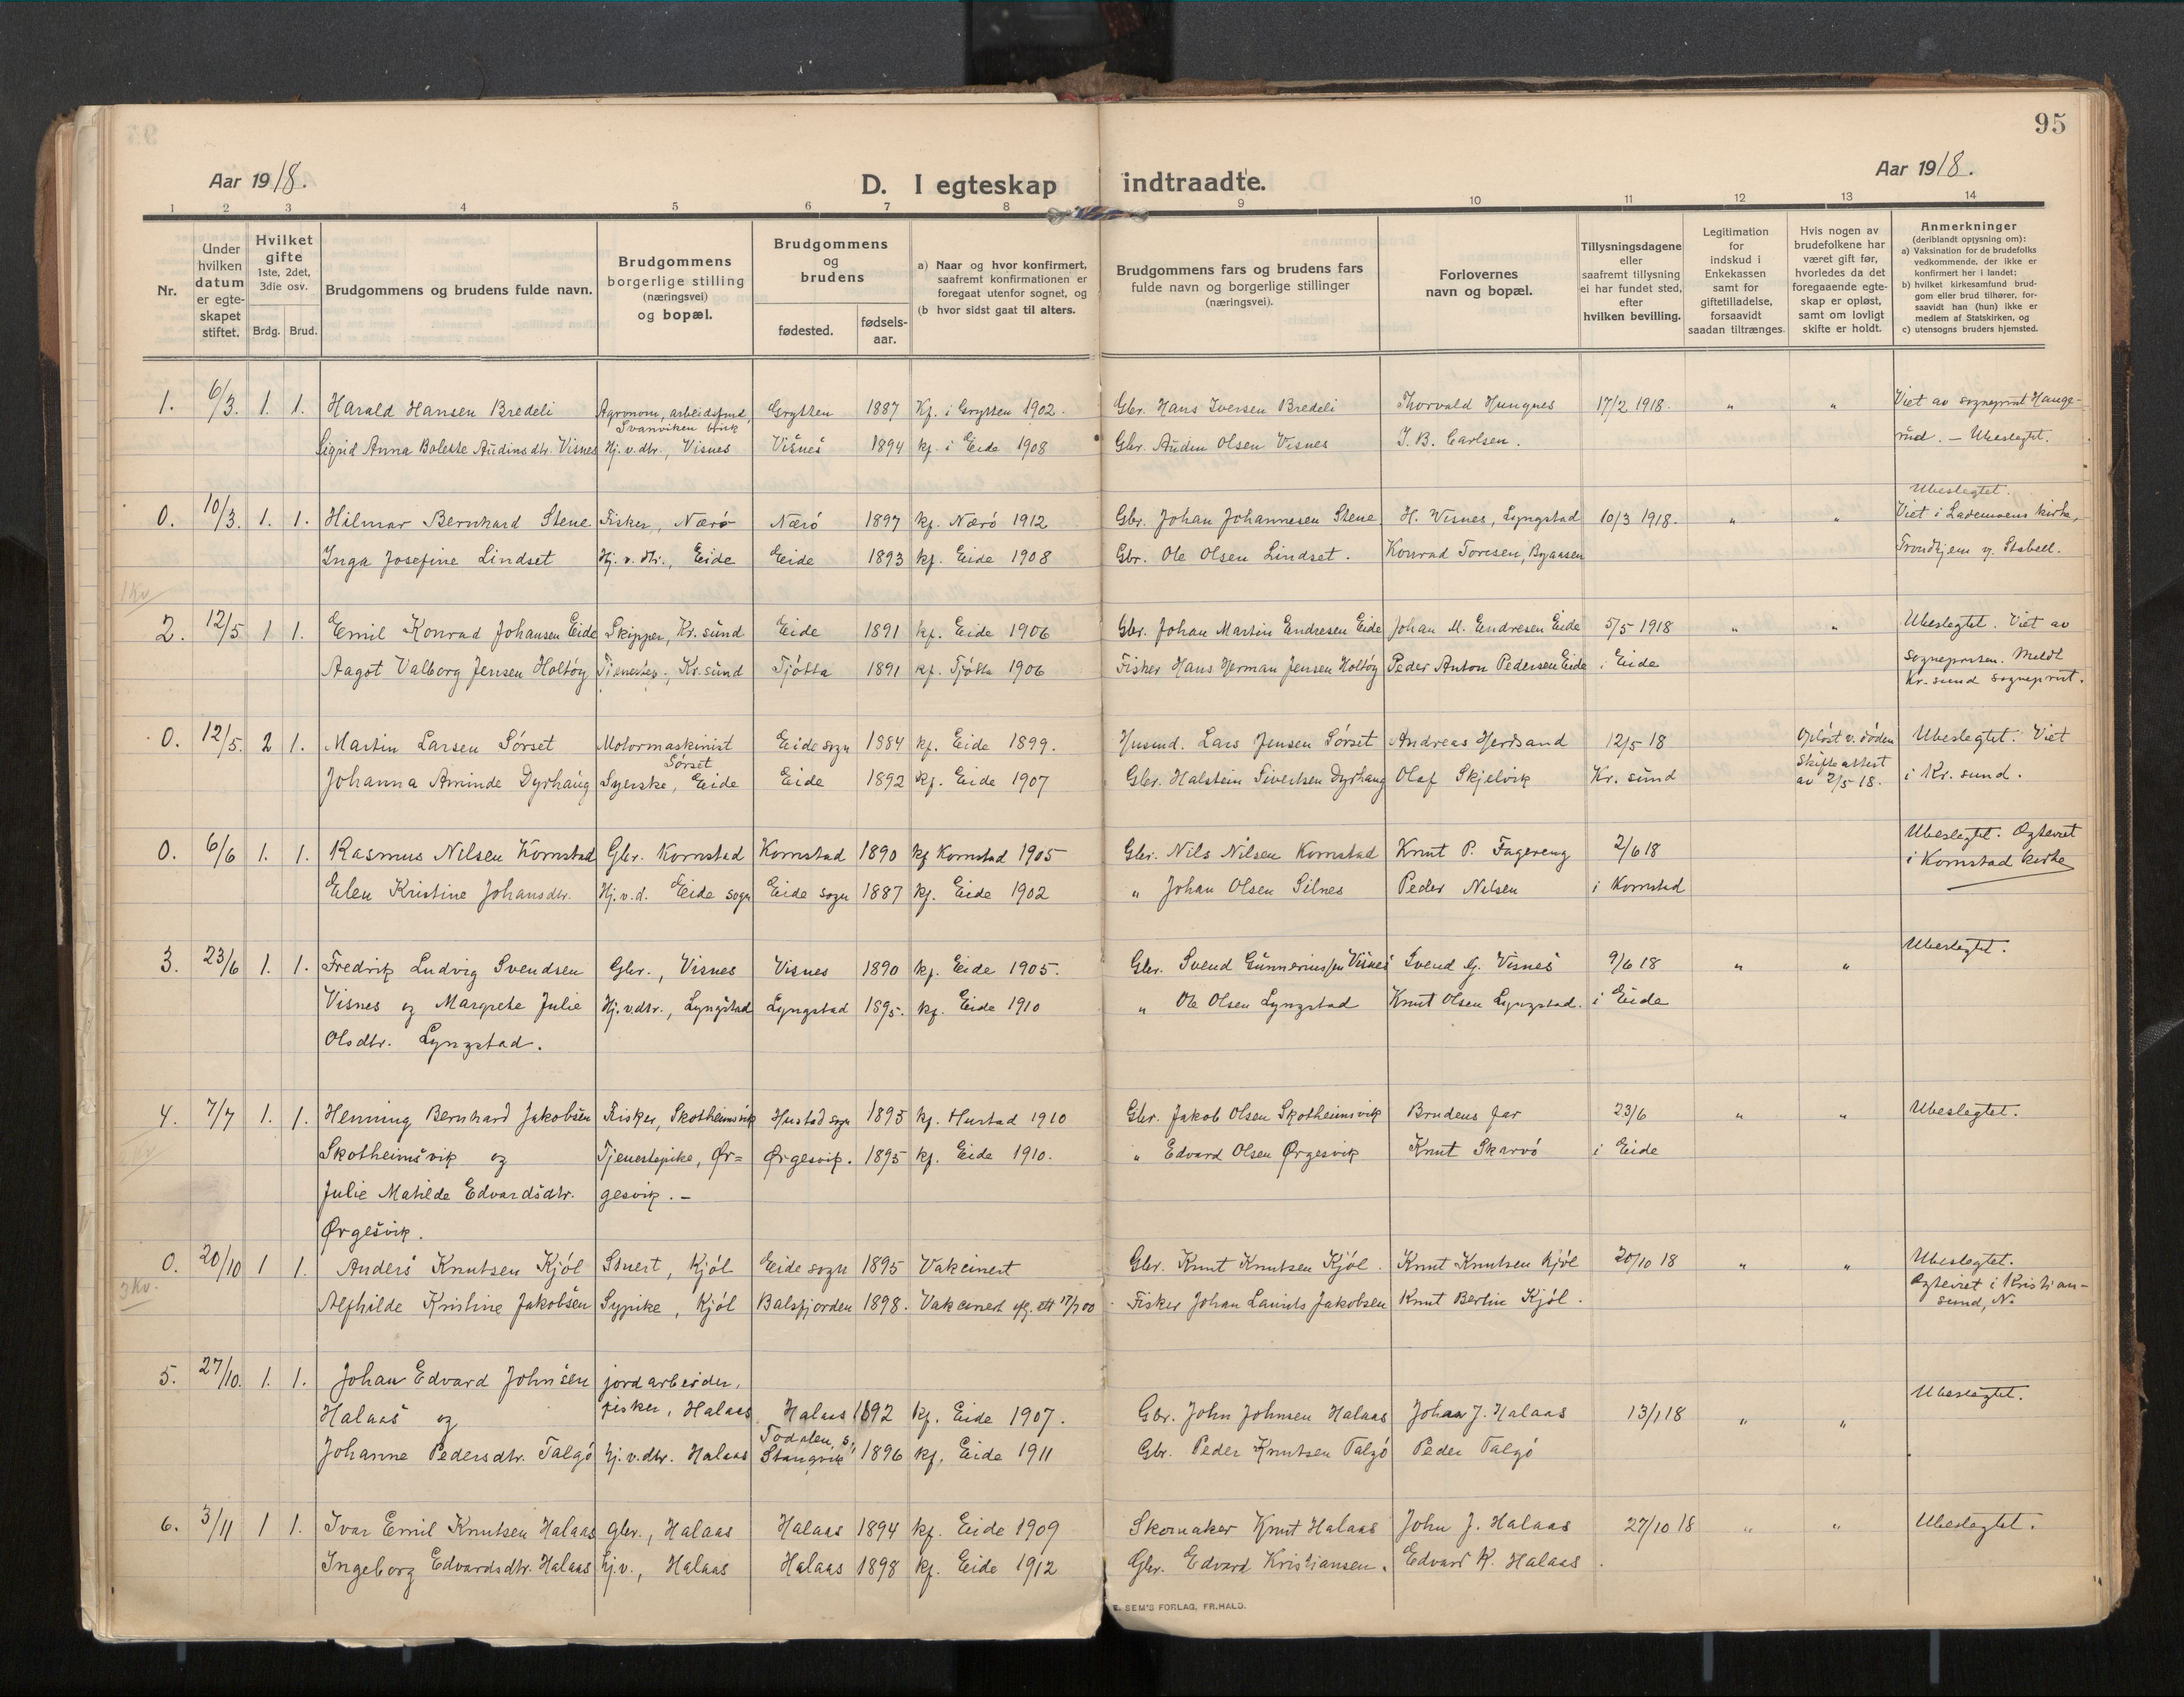 95
Aar 1918.
D. I egteskap indtraadte.
Aar 1918.
1 2 3 4 5 6 7 8 9 10 11 12 13 14
Nr.
Under hvilken datum er egteskapet stiftet.
Hvilket gifte 1ste, 2det, 3die osv.
Brdg. Brud.
Brudgommens og brudens fulde navn.
Brudgommens borgerlige stilling (næringsvei) og bopæl.
Brudgommens og brudens
fødested. fødsels-aar.
a) Naar og hvor konfirmert, saafremt konfirmationen er foregaat utenfor sognet, og
(b hvor sidst gaat til alters.
Brudgommens fars og brudens fars fulde navn og borgerlige stillinger (næringsvei).
Forlovernes navn og bopæl.
Tillysningsdagene eller saafremt tillysning ei har fundet sted, efter hvilken bevilling.
Legitimation for indskud i Enkekassen samt for giftetilladelse, forsaavidt saadan tiltrænges.
Hvis nogen av brudefolkene har været gift før, hvorledes da det foregaaende egteskap er opløst, samt om lovligt skifte er holdt.
Anmerkninger
(deriblandt opjysning om):
a) Vaksination for de brudefolks vedkommende, der ikke er konfirmert her i landet;
b) hvilket kirkesamfund brudgom eller brud tilhører, forsaavidt han (hun) ikke er medlem af Statskirken, og
c) utensogns bruders hjemsted.
1. 6/3. 1. 1. Harald Hansen Bredeli Agronom, arbeidsfmd, Grytten 1887 Kf. i Grytten 1902. Gbr. Hans Iversen Bredeli Thorvald Hungnes 17/2 1918. " " Viet av sogneprest Hauge-
Svanviken
Sigrid Anna Bolette Audinsdtr. Visnes Hj. v. dtr., Visnes Visnes 1894 kf. i Eide 1908 Gbr. Audun Olsen Visnes J. B. Carlsen. rud. - Ubeslegtet.
Ubeslegtet.
0. 10/3. 1. 1. Hilmar Bernhard Stene Fisker, Nærö Nærö 1897 kf. Nærö 1912 Gbr. Johan Johannesen Stene H. Wisnes, Lyngstad 10/3 1918. " " Viet i Lademoens kirke,
Inga Josefine Lindset Hj. v. dtr., Eide Eide 1893 kf. Eide 1908 Gbr. Ole Olsen Lindset. Konrad Toresen, Byaasen Trondhjem v. Stabell.
1 Kv
2. 12/5 1 1. Emil Konrad Johansen Eide Skipper, Kr. sund Eide 1891 kf. Eide 1906 Gbr. Johan Martin Endresen Eide Johan M. Endresen Eide 5/5 1918 " " Ubeslegtet. Viet av
Aagot Valborg Jensen Holtöy Tjenestep., Kr. sund Tjötta 1891 kf. Tjötta 1906 Fisker Hans Herman Jensen Holtöy Peder Anton Pedersen Eide i Eide sognepresten. Meldt
Kr. sund sogneprest.
0. 12/5. 2 1. Martin Larsen Sörset Motormaskinist Eide sogn 1884 kf. Eide 1899. Husmd. Lars Jensen Sörset Andreas Herdsand 12/5 18 Opløst v. döden Ubeslegtet. Viet
Sörset Skifteattest
Johanna Aminde Dyrhaug Syerske, Eide Eide 1892 kf. Eide 1907 Gbr. Halstein Sivertsen Dyrhaug Olaf Skjelvik Kr. sund av 2/5 18. i Kr. sund.
0. 6/6 1. 1. Rasmus Nilsen Kornstad Gbr. Kornstad Kornstad 1890 kf Kornstad 1905 Gbr. Nils Nilsen Kornstad Knut P. Fagereng 2/6 18 Ubeslegtet. Egteviet
i Kornstad kirke
Elen Kristine Johansdtr. Hj. v. d. Eide sogn Eide sogn 1887 kf. Eide 1902 " Johan Olsen Silnes Peder Nilsen i Kornstad
3. 23/6 1. 1. Fredrik Ludvig Svendsen Gbr., Visnes Visnes 1890 kf. Eide 1905. Gbr. Svend Gunneriussen Visnes Svend G. Visnes 9/6 18 " " Ubeslegtet.
Visnes og Margrete Julie Hj. v. dtr., Lyngstad Lyngstad 1895. kf. Eide 1910 " Ole Olsen Lyngstad Knut Olsen Lyngstad. i Eide
Olsdtr. Lyngstad.
4. 7/7 1. 1. Henning Bernhard Jakobsen Fisker, Skotheimsvik Hustad sogn 1893 kf. Hustad 1910 Gbr. Jakob Olsen Skotheimsvik Brudens far 23/6 " " Ubeslegtet.
Skotheimsvik og Tjenestepike, Ør= Ørgesvik. 1895 kf. Eide 1910. " Edvard Olsen Ørgesvik Knut Skarvö i Eide
Julie Matilde Edvardsdtr. gesvik. -
Ørgesvik.
0. 20/10 1 1. Anders Knutsen Kjöl Stuert, Kjöl Eide sogn 1895 Vakcinert Gbr. Knut Knutsen Kjöl. Knut Knutsen Kjöl 20/10 18 " " Ubeslegtet.
3 Kv. Egteviet i Kristian-
Alfhilde Kristine Jakobsen Sypike, Kjöl Balsfjorden 1898. Vakcinert Fisker Johan Laurits Jakobsen Knut Bertin Kjöl. sund, N.
5. 27/10. 1. 1. Johan Edvard Johnsen jordarbeider,
Halaas og fisker, Halaas Halaas 1892 kf. Eide 1907. Gbr. John Johnsen Halaas Johan J. Halaas 13/1 18 " " Ubeslegtet.
Todalen, s.
Johanne Pedersdtr. Talgö hj. v. dtr. Halaas Stangvik 1896 kf. Eide 1911 Gbr. Peder Knutsen Talgö Peder Talgö
6. 3/11 1 1. Ivar Emil Knutsen Halaas gbr., Halaas Halaas 1894 kf. Eide 1909 Skomaker Knut Halaas John J. Halaas 27/10 18 " " Ubeslegtet.
Ingeborg Edvardsdtr. Halaas hj. v., Halaas Halaas 1898 kf. Eide 1912 Gbr. Edvard Kristiansen. Edvard K. Halaas.
E. SEM'S FORLAG, FR.HALD.